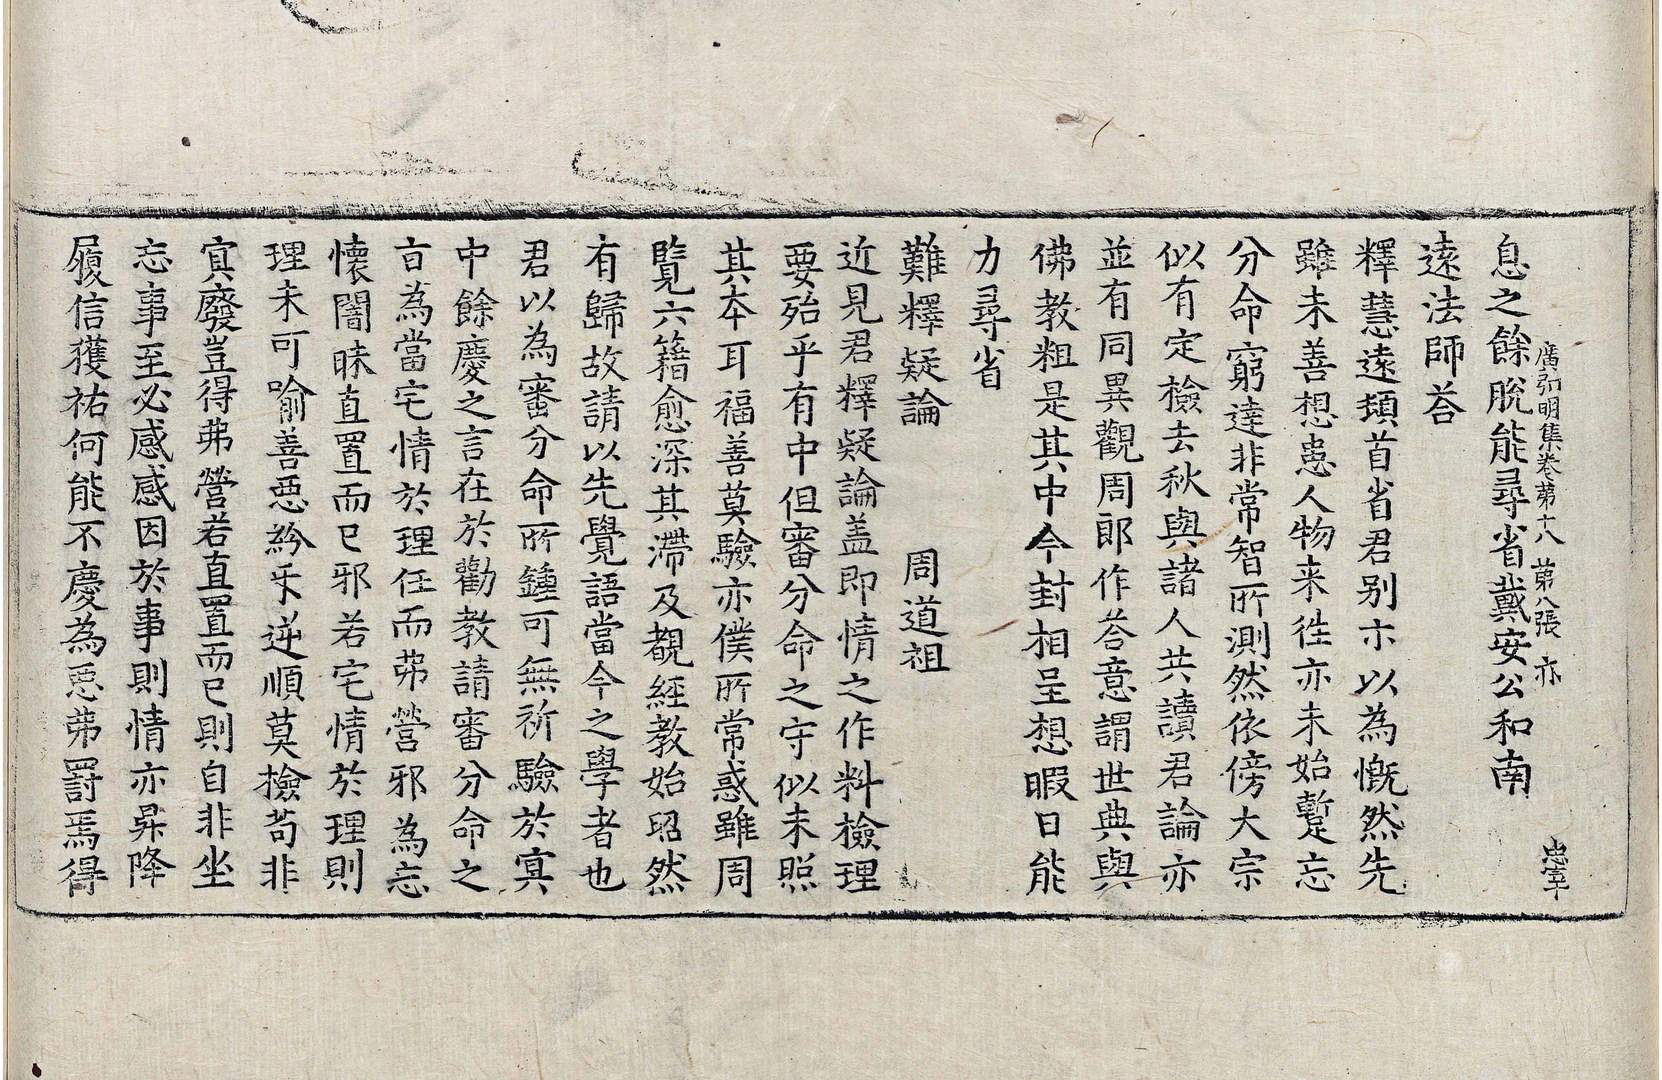 廣弘明集卷苐十八 苐八張 亦 忠幸
息之餘脫能尋省戴安公和南
遠法師荅
釋慧遠頓首省君别亦以為慨然先
雖未善想患人物来徃亦未始蹔忘
分命窮達非常智所測然依傍大宗
似有定檢去秋與諸人共讀君論亦
並有同異觀周郎作荅意謂世典與
佛教粗是其中今封相呈想暇日能
力尋省
難釋疑論 周道祖
近見君釋疑論盖即情之作料檢理
要殆乎有中但審分命之守似未照
其本耳福善莫驗亦僕所常惑雖周
覽六籍愈深其滯及覩經教始昭然
有歸故請以先覺語當今之學者也
君以為審分命所鍾可無祈驗於冥
中餘慶之言在於勸教請審分命之
㫖為當宅情於理任而弗營邪為忘
懷闇昧直置而已邪若宅情於理則
理未可喻善惡紛㸦逆順莫檢苟非
冥廢豈得弗營若直置而已則自非坐
忘事至必感感因於事則情亦昇降
履信獲祐何能不慶為惡弗罸焉得